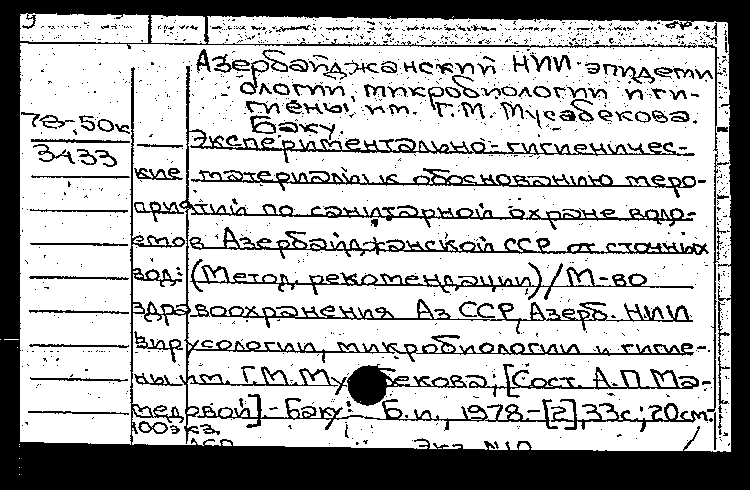 Азербайджанский НИИ эпидеми
ологии, микробиологии и ги-
гиены им. Г.М. Мусабекова.
Баку.
78-,50к
3433
Экспериментально-гигиеничес-
кие материалы к обоснованию меро-
приятий по санитарной охране водо-
емов Азербайджанской ССР от сточных
вод: (Метод. рекомендации)/М-во
здравоохранения Аз ССР, Азерб. НИИ
вирусологии, микробиологии и гигие-
ны им. Г.М. Му бекова; [Сост. А.П. Ма-
медовой].- Баку: Б.и., 1978-[2],33с; 20см.
100экз.
Экз. N10